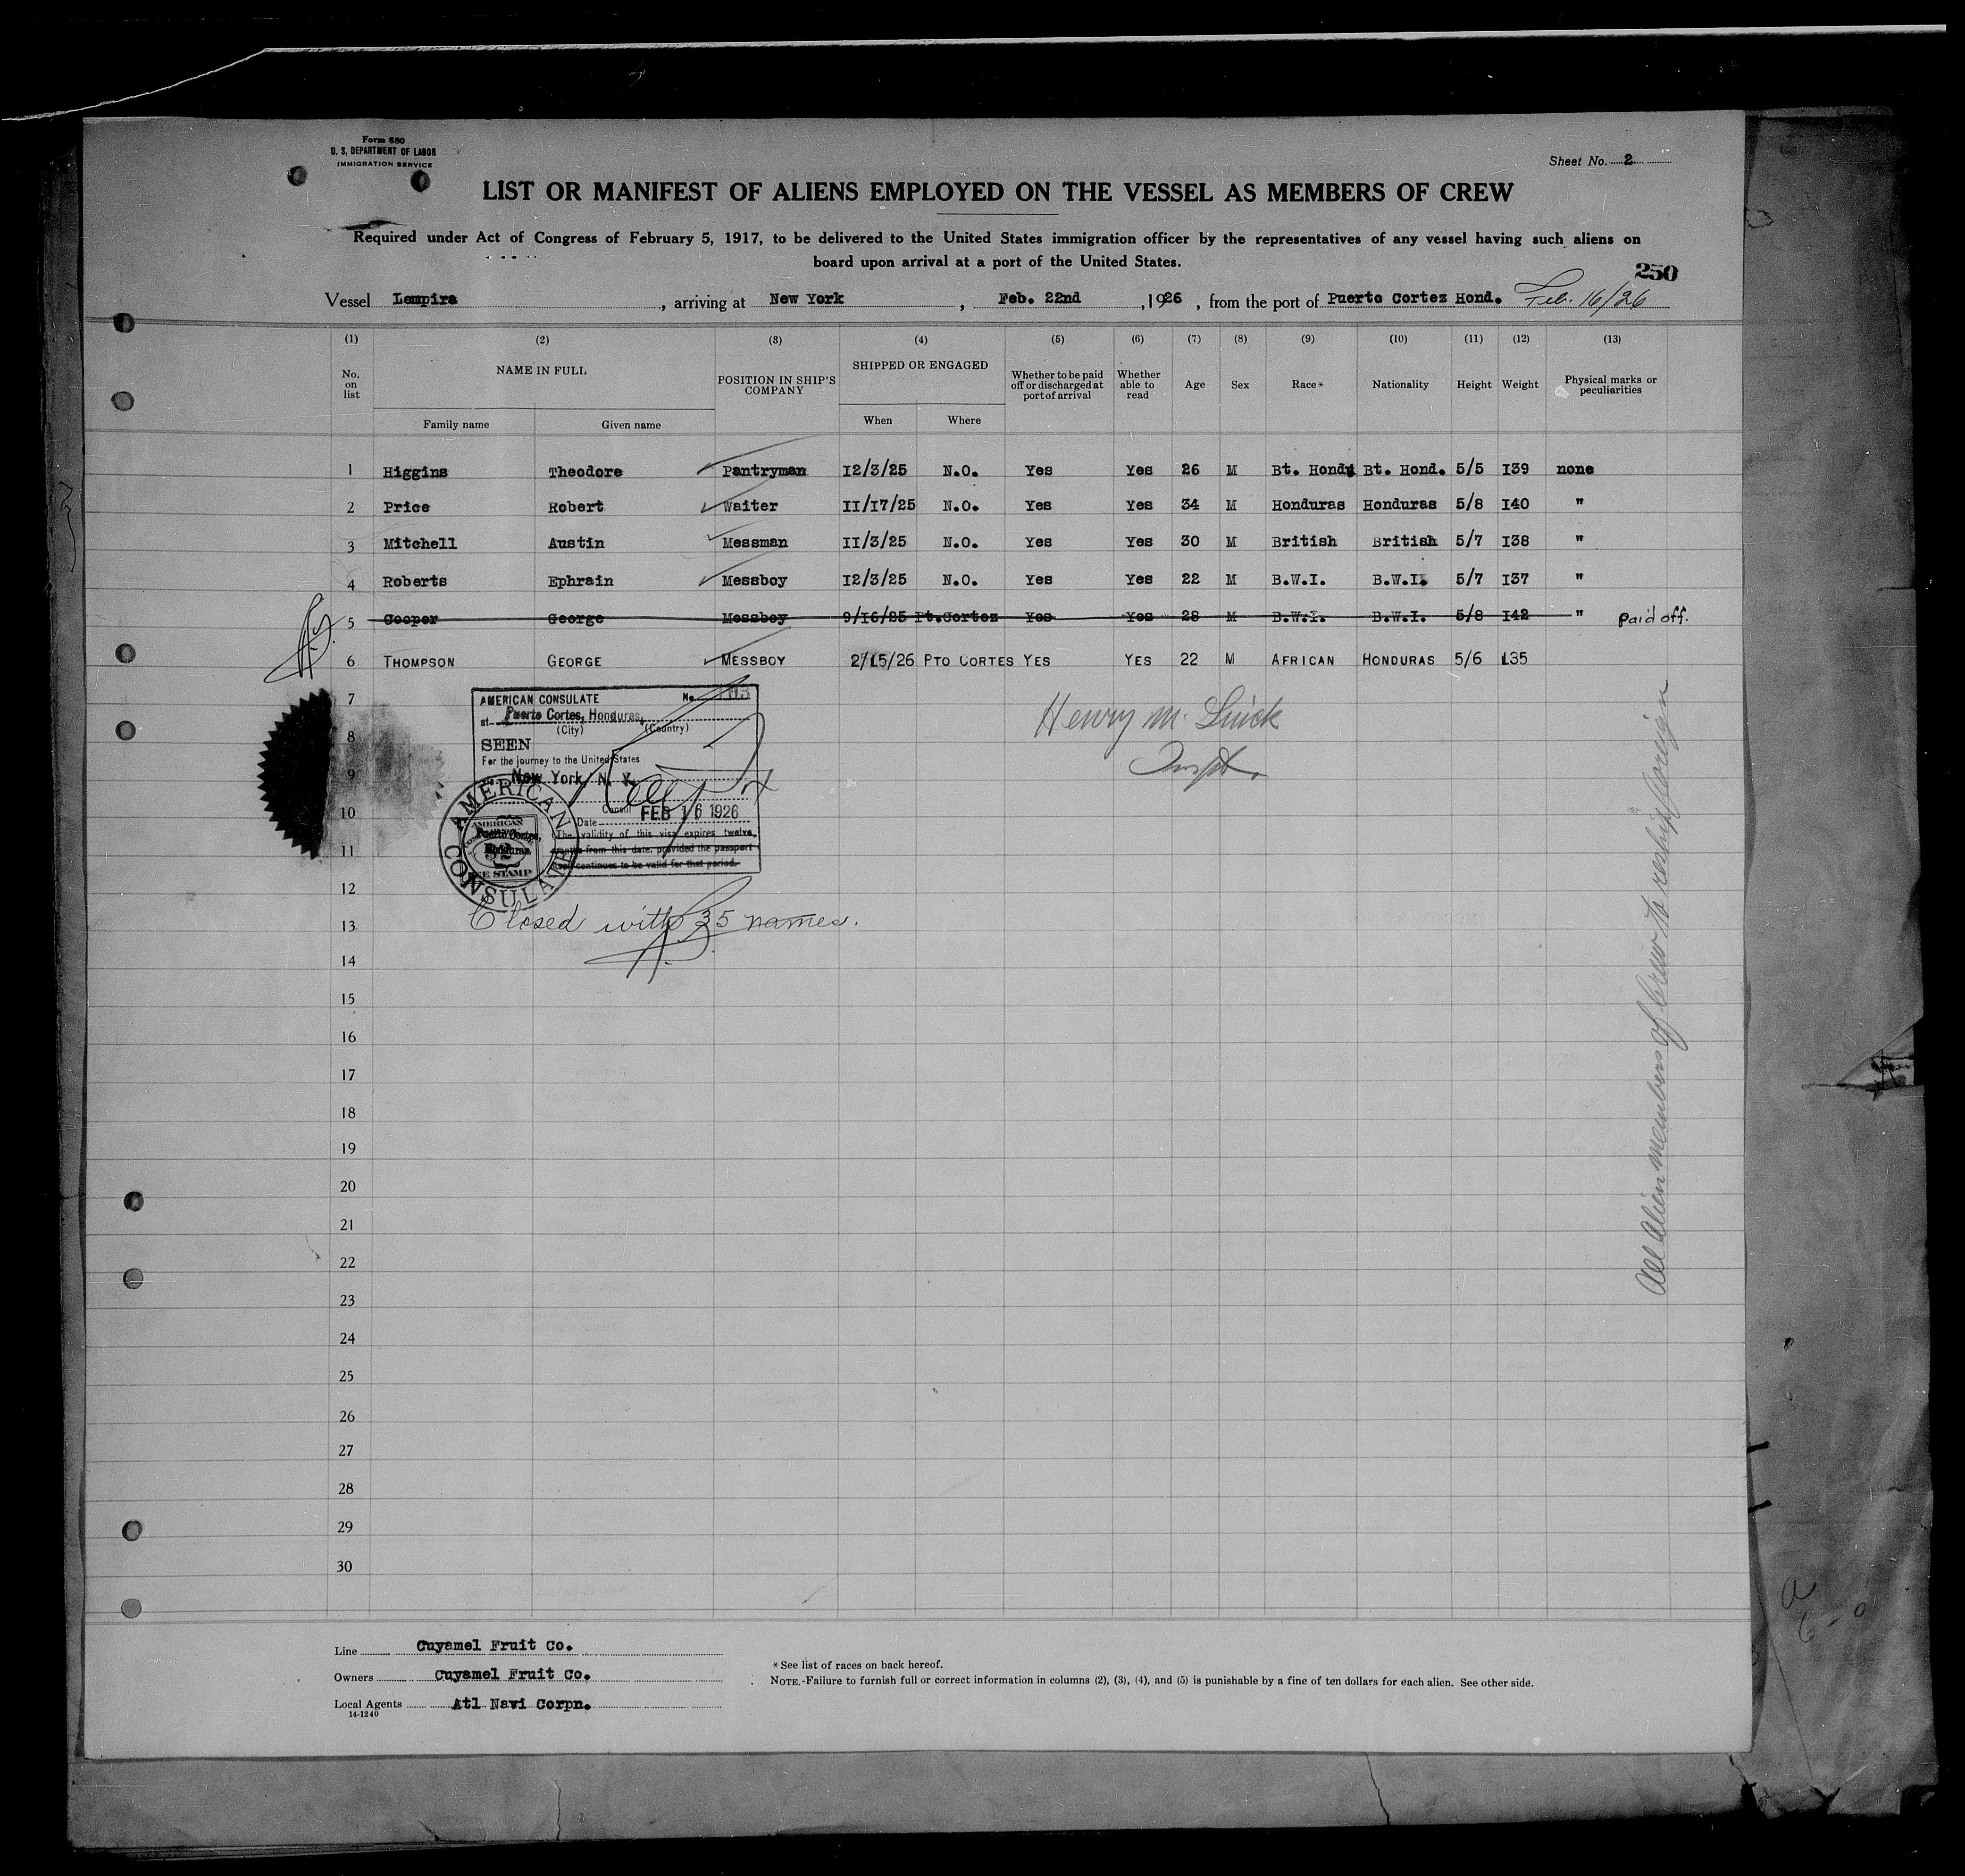 Form 680
U. S. DEPARTMENT OF LABOR
IMMIGRATION SERVICE
Sheet No. 2
LIST OR MANIFEST OF ALIENS EMPLOYED ON THE VESSEL AS MEMBERS OF CREW
Required under Act of Congress of February 5, 1917, to be delivered to the United States immigration officer by the representatives of any vessel having such aliens on
board upon arrival at a port of the United States.
250
Vessel Lempira, arriving at New York, Feb. 22nd, 1926, from the port of Puerto Cortez Hond. Feb. 16/26
(1) (2) (3) (4) (5) (6) (7) (8) (9) (10) (11) (12) (13)
No. on list NAME IN FULL POSITION IN SHIP'S COMPANY SHIPPED OR ENGAGED Whether to be paid off or discharged at port of arrival Whether able to read Age Sex Race* Nationality Height Weight Physical marks or peculiarities
Family name Given name When Where
1 Higgins Theodore Pantryman 12/3/25 N.O. Yes Yes 26 M Bt. Hond Bt. Hond. 5/5 139 none
2 Price Robert Waiter 11/17/25 N.O. Yes Yes 34 M Honduras Honduras 5/8 140 "
3 Mitchell Austin Messman 11/3/25 N.O. Yes Yes 30 M British British 5/7 138 "
4 Roberts Ephrain Messboy 12/3/25 N.O. Yes Yes 22 M B.W.I. B.W.I. 5/7 137 "
5 Cooper George Messboy 9/16/25 Pt.Cortez Yes Yes 28 M B.W.I. B.W.I. 5/8 142 " paid off.
6 THOMPSON GEORGE MESSBOY 2/15/26 PTO CORTES YES YES 22 M AFRICAN HONDURAS 5/6 135
7
8
9
10
11
12
13
14
15
16
17
18
19
20
21
22
23
24
25
26
27
28
29
30
AMERICAN CONSULATE No.
at Puerto Cortes, Honduras,
(City) (Country)
SEEN
For the journey to the United States
New York, N. Y.
Consul
Date FEB 16 1926
The validity of this visa expires twelve
months from this date, provided the passport
continues to be valid for that period.
AMERICAN CONSULATE
AMERICAN
Puerto Cortes,
Honduras
FEE STAMP
Closed with 35 names.
Henry M.
Inspt.
All Alien members of Crew to reship foreign
Line Cuyamel Fruit Co.
Owners Cuyamel Fruit Co.
Local Agents Atl Navi Corpn.
14-1240
*See list of races on back hereof.
NOTE.-Failure to furnish full or correct information in columns (2), (3), (4), and (5) is punishable by a fine of ten dollars for each alien. See other side.